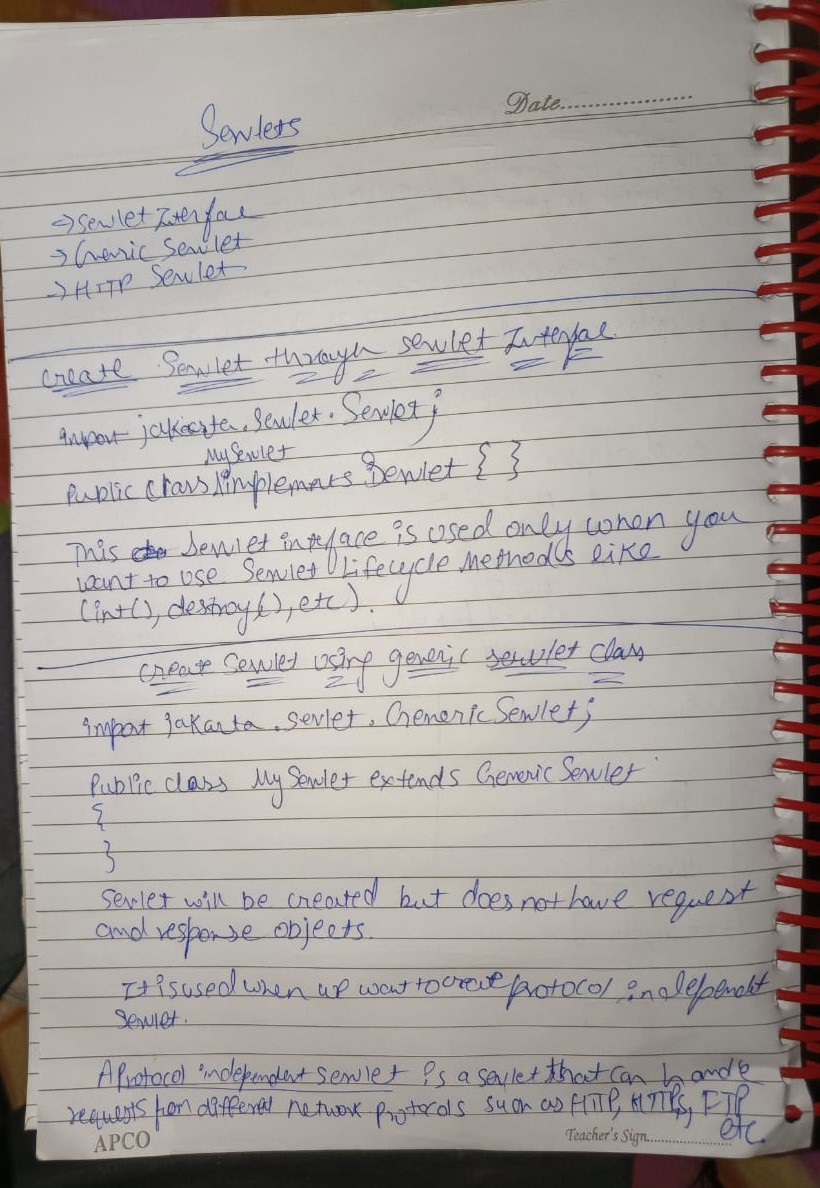 Date
Servlets
→ Servlet Interface
→ Generic Servlet
→ HTTP Servlet
Create Servlet through servlet Interface
import jakarta.servlet.Servlet;
MyServlet
Public class implements Servlet { }
This Servlet interface is used only when you
want to use Servlet Lifecycle Methods like
(int(), destroy(), etc).
Create Servlet using generic servlet class
import jakarta.servlet.GenericServlet;
Public class MyServlet extends GenericServlet
{
}
Servlet will be created but does not have request
and response objects.
It is used when want to create protocol independent
Servlet.
A Protocol independent servlet is a servlet that can handle
requests from different network protocols such as HTTP, HTTPS, FTP
etc.
APCO
Teacher's Sign